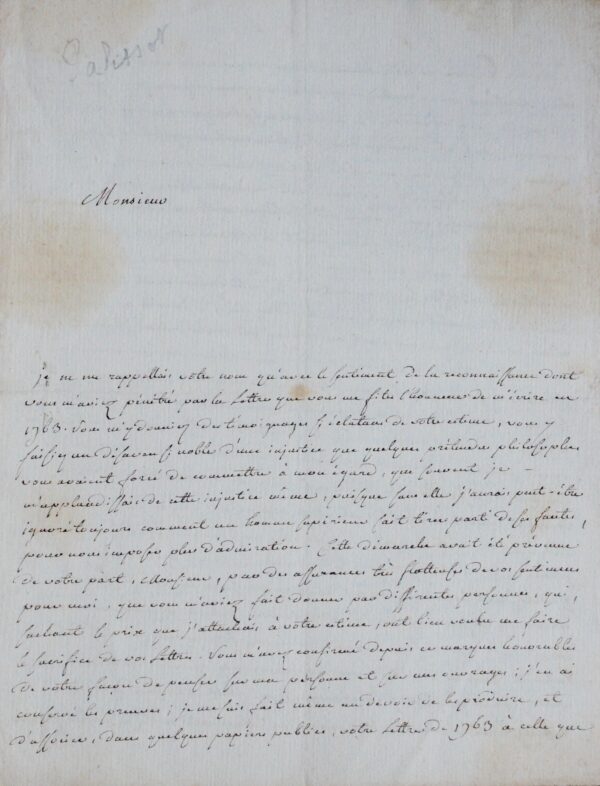 Palissot
Monsieur
je ne me rappellais votre nom qu'avec le sentiment de la reconnaissance dont
vous m'aviez pénétré par la Lettre que vous me fites l'honneur de m'écrire en
1763. Vous m'y donniez des temoignages si éclatans de votre estime, vous y
faisiez un desaveu si noble d'une injustice que quelques prétendus philosophes
vous avaient forcé de commettre à mon égard, que souvent je
m'applaudissais de cette injustice même, puisque sans elle j'aurais peut-être
ignoré toujours comment un homme supérieur sait tirer parti de ses fautes,
pour nous imposer plus d'admiration. Cette démarche avait été prévenue
de votre part, Monsieur, par des assurances très flatteuses de vos sentimens
pour moi, que vous m'aviez fait donner par differentes personnes, qui,
sachant le prix que j'attachais à votre estime, ont bien voulu me faire
le sacrifice de vos Lettres. Vous m'avez confirmé depuis ces marques honorables
de votre façon de penser sur ma personne et sur mes ouvrages; j'en ai
conservé les preuves; je me suis fait même un devoir de les produire, et
d'associer, dans quelques papiers publics, votre Lettre de 1763 à celle que